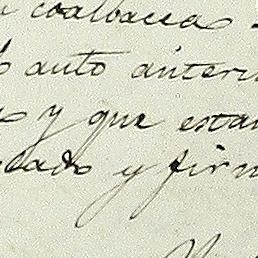 coalbacea
auto anteri
y que estan
cado y firm